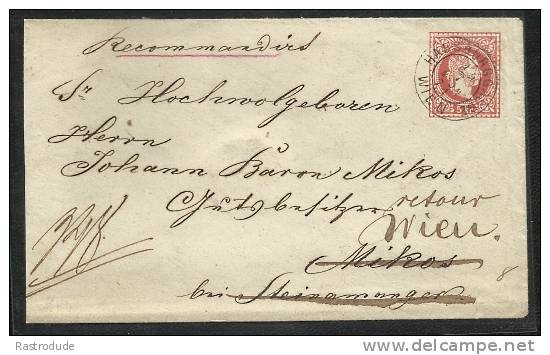 Recommandirt
Sr Hochwolgeboren
Herrn
Johann Baron Mikos
Gutsbesitzer retour
Wien.
Mikos
bei Steinamanger
8
WIEN
Rastrodude
delcampe.net